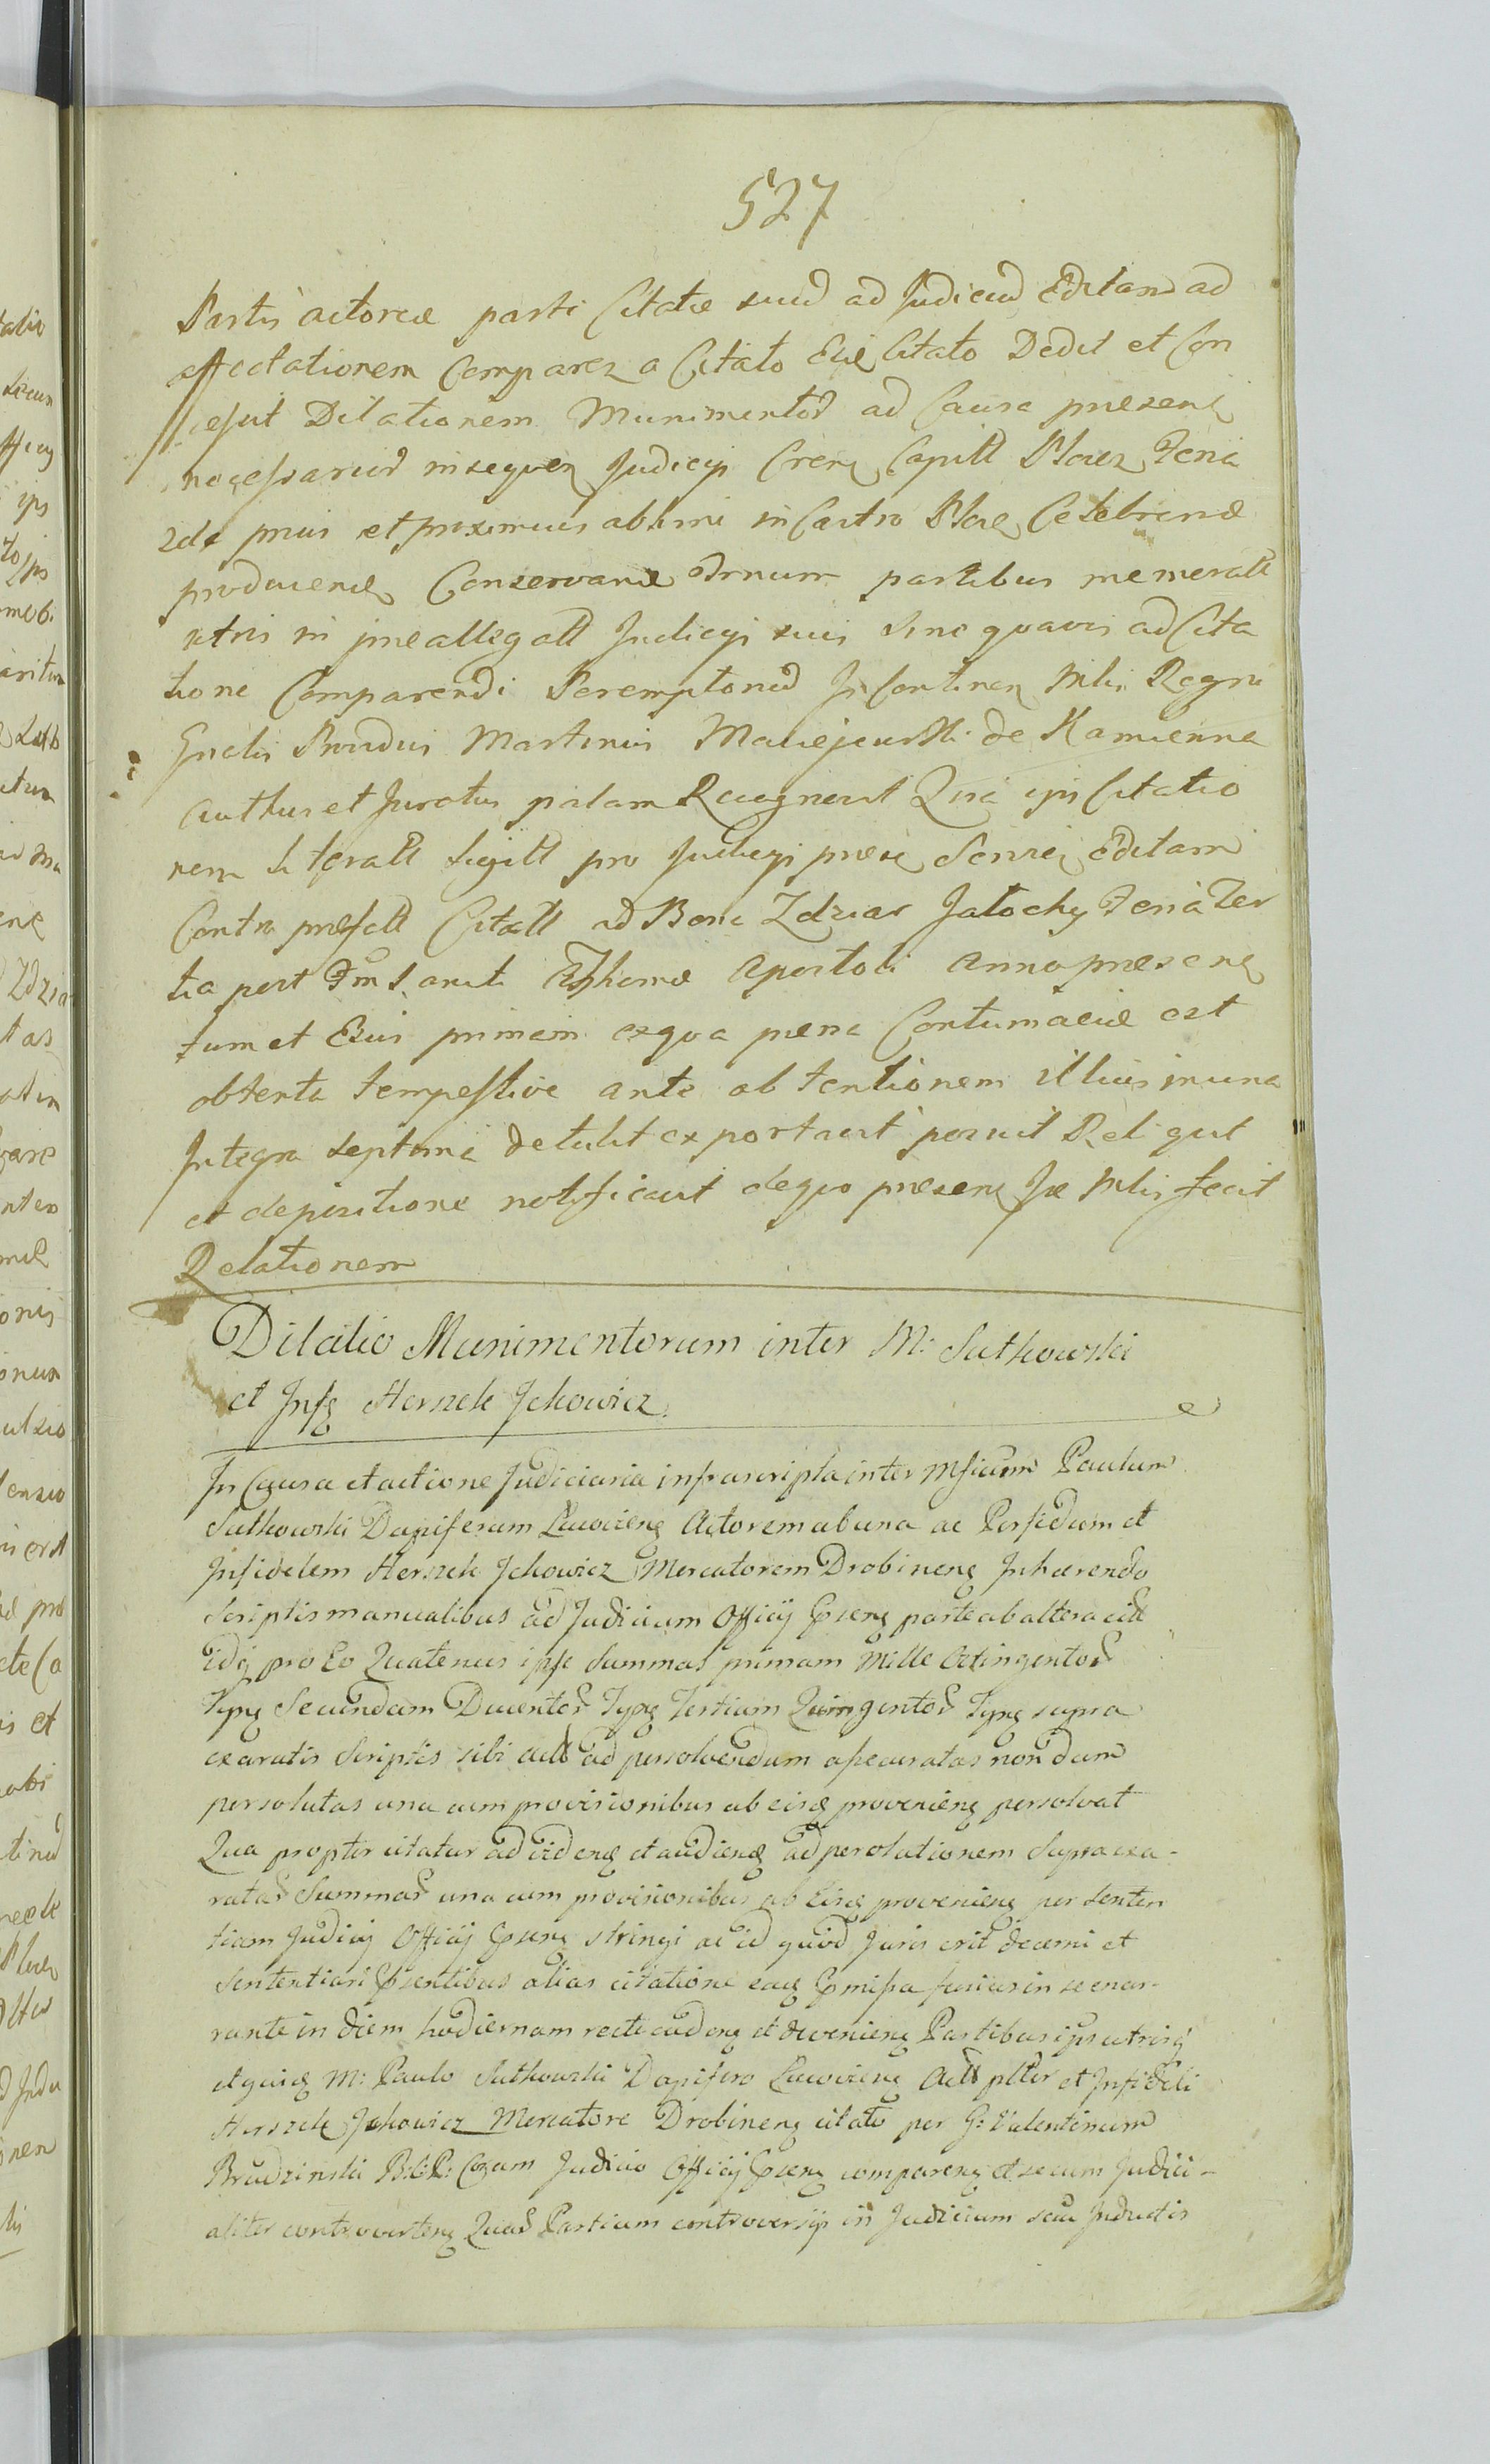 527
Partis actoreæ parti Citatæ suud ad Judiciud Editam ad
affectationem Comparez a Citato Eiq Citato Dedit et Con
cessit Dilationem Munimentod ad Causa presenq
necessariod insequen Judicyi Crenq Capitt Plocz Feria
2da prius et proximius abhinc in Castro Ploc Celebrend
producend Conservand Trnum partibus memoratt
utris in preallegatt Judicyi suis sine quavis ad Cita
tione Comparendi Peremptoried In Continen Mlis Regni
Gnalis Providus Martinus Maciejewski de Kamienna
authus et Juratus palam Recognovit Quia ipse Citatio
nem literatt Sigitt pro Judicyi prese Servie Editam
Contra prefatt Citatt ad Bona Zdziar Jatochy Feria Ter
tia post Fm Sancti Thomæ Apostoli anno presenq
tum et Eius primam ex qua pena Contumaciæ est
obtenta tempestive ante obtentionem illius in una
Integra Septima detulit exportavit posuit Reliquit
et depositione notificavit de quo presenq Jæ Mlis fecit
Relationem
Dilatio Munimentorum inter M: Sutkowski
et Infq Herszek Jckowicz
In Causa et actione Judiciaria infrascripta inter Mficum Paulum
Sutkowski Dapiferum Lucovienq Actorem ab una ac Perfidum et
Infidelem Herszek Jckowicz Mercatorem Drobinenq Inhærendo
Scriptis manualibus ad Judicium Officij Psenq parte ab altera citt
idq pro Eo Quatenus ipse Summas primam Mille Octingentod
Typq Secundam Ducentod Typq Tertiam Quingentod Typq supra
exaratis Scriptis sibi actt ad persolvendum assecuratas non dum
persolutas una cum provisionibus ab eisq provenienq persolvat
Qua propter citatur ad vidend et audiend ad persolutionem Supra exa-
ratas Summas una cum provisionibus ab Eisq provenienq per Senten
tiam Judicij Officij Psenq stringi ac id quod Juris erit decerni et
Sententiari Psentibus alias citatione eaq Pmissa fusius in se enar-
rante in diem hodiernam recte cadenq et devenienq Partibus ipis utrisq
et quisq M: Paulo Sutkowski Dapifero Lucovienq Actt plter et Infideli
Herszek Jckowicz Mercatore Drobinenq citato per G: Valentinum
Brudzinski B:C:P: Coram Judicio Officij Psenq comparenq et secum Judici-
aliter controvertenq Quad Partium controversijs in Judicium seu Inductis